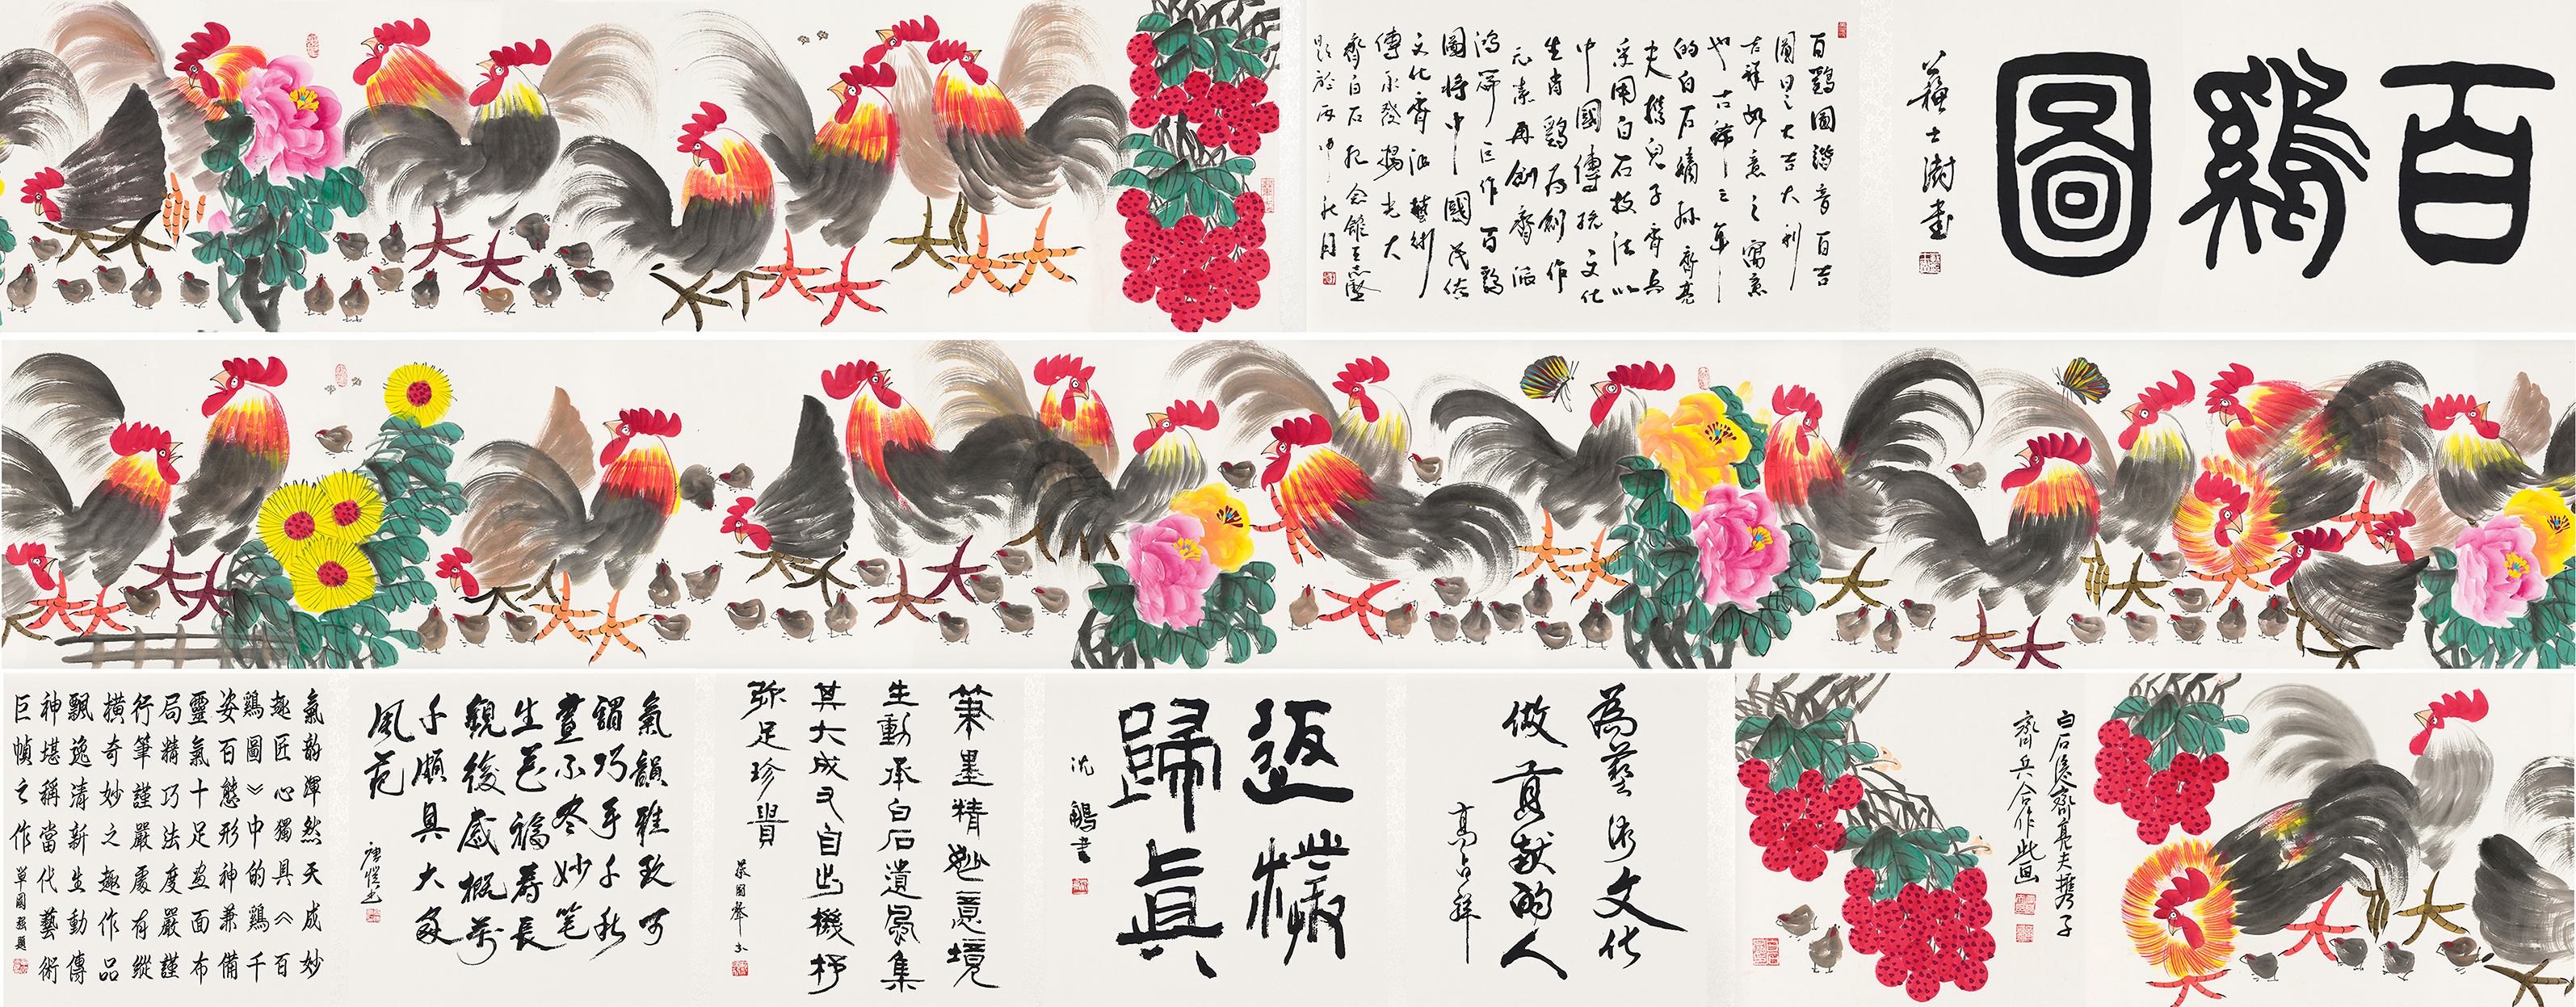 百鷄圖
蘇士澍書
百鷄圖諧音百吉
圖日之大吉大利
吉祥如意之寓意
也古稀之年
的白石嫡孫齊亮
夫携兒子齊兵
采用白石技法以
中國傳統文化
生肖鷄为創作
元素再創齊派
鴻篇巨作百鷄
圖將中國民俗
文化齊派藝術
傳承發揚光大
齊白石紀念館王志堅
題於丙申秋月
白石後裔齊亮夫攜子
齊兵合作此画
為藝術文化
做貢献的人
高占祥
返樸
歸真
沈鵬書
筆墨精妙意境
生動承白石遺風集
其大成又自出機杼
弥足珍貴
氣韻雅致可
謂巧手千秋
畫不尽妙笔
生花福壽長
觀後感概萬
千頗具大家
風范
氣韵渾然天成妙
趣匠心獨具《百
鷄圖》中的鷄千
姿百態形神兼備
靈氣十足画面布
局精巧法度嚴謹
行筆謹嚴處有縱
横奇妙之趣作品
飄逸清新生動傳
神堪稱當代藝術
巨幀之作 單國强題